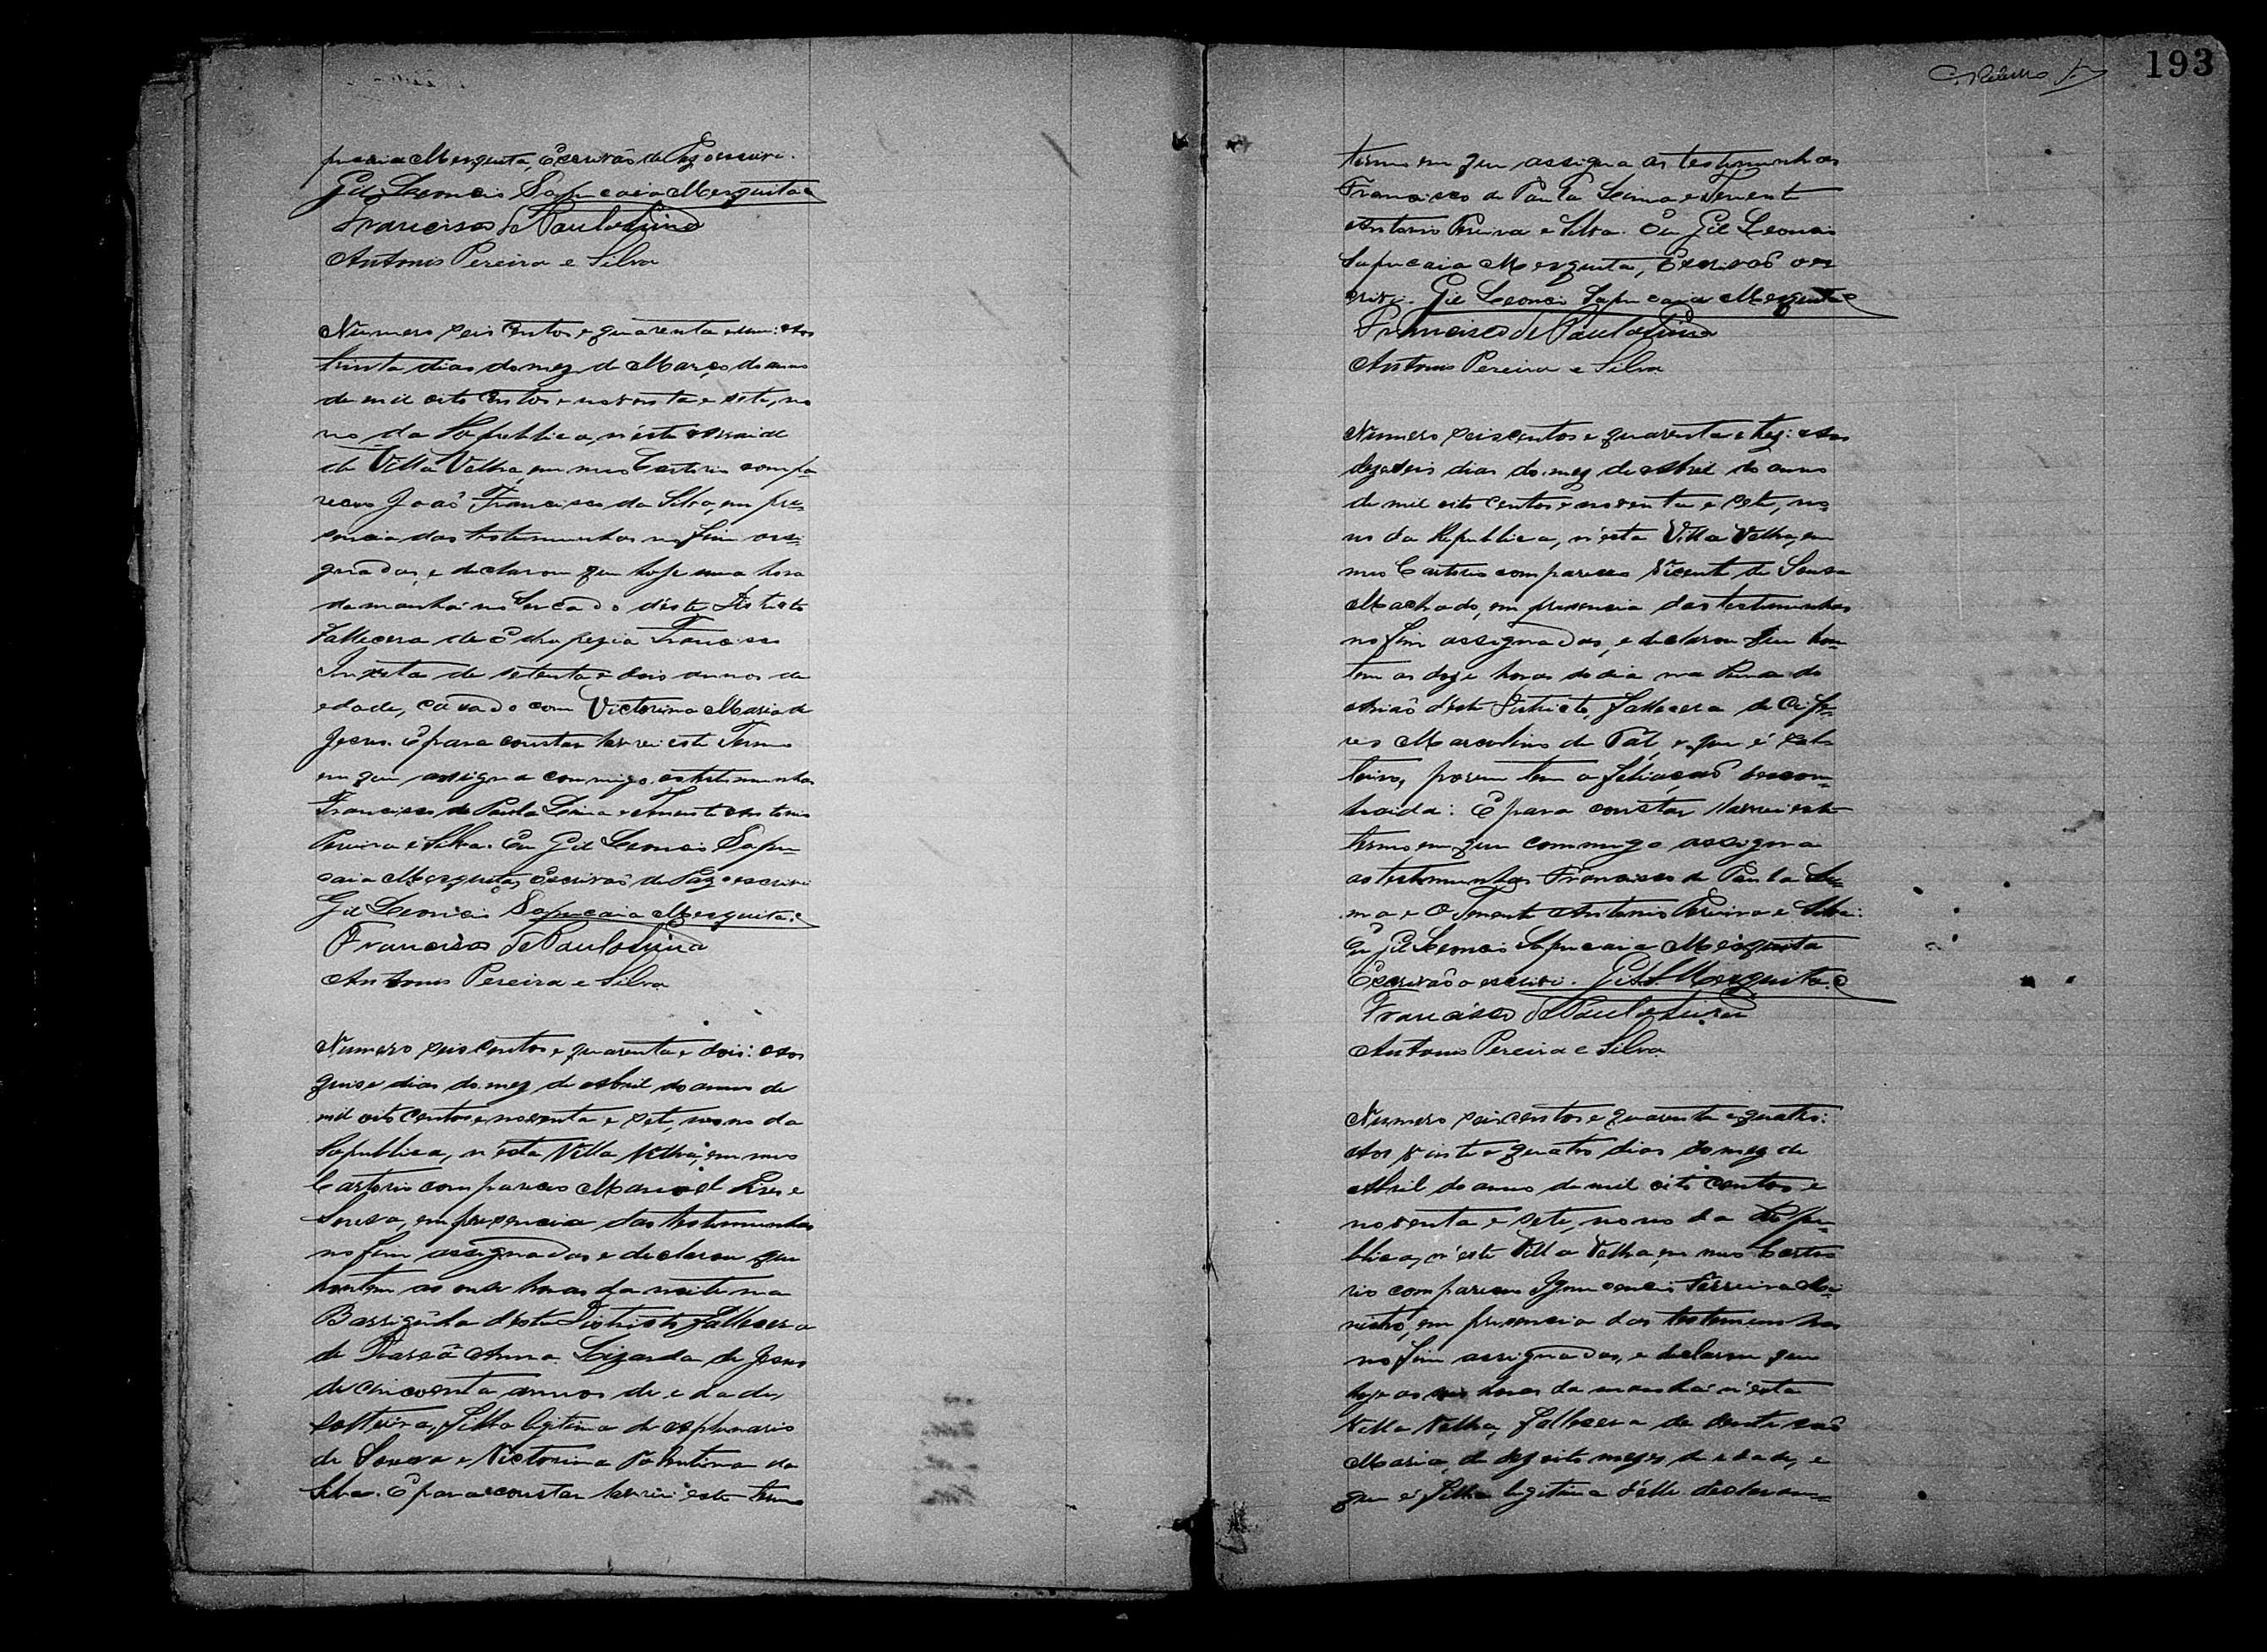 Mesquita, Escrivão de Paz o escrivi.
Gil Leoncio Sapucaia Mesquita
Francisco de Paula Lima
Antonio Pereira e Silva
Numero seis centos e quarenta e um: Aos
trinta dias do mez de Março do anno
de mil oito centos e noventa e sete, no
no da Republica, n'este arraial
de Villa Velha, em meu Cartorio compa
receo João Francisco da Silva, em pre
sencia das testemunhas no fim assi
gnadas, e declarou que hoje uma hora
da manhã no deste Districto
fallecera de Francisco
de setenta e dois annos de
edade, casado com Victorina Maria de
Jesus. E para constar lavrei este Termo
em que assigna commigo as testemunhas
Francisco de Paula Lima e Tenente Antonio
Pereira e Silva. Eu Gil Leoncio Sapu
caia Mesquita, Escrivão de Paz o escrivi
Gil Leoncio Sapucaia Mesquita
Francisco de Paula Lima
Antonio Pereira e Silva
Numero seis centos e quarenta e dois: Aos
quise dias do mez de Abril do anno de
mil oito centos e noventa e sete, nono da
Republica, n'esta Villa Velha, em meu
Cartorio compareceo Manoel Pires e
Sousa, em presencia das testemunhas
no fim assignadas e declarou que
hontem as onze horas da noite na
Barriguda deste Districto, fallecera
de Anna de Jesus
de cincoenta annos de edade,
solteira, filha legitima de
de Sousa e Victorina da
Silva. E para constar lavrei este termo
193
termo em que assigna as testemunhas
Francisco de Paula Lima e Tenente
Antonio Pereira e Silva. Eu Gil Leoncio
Sapucaia Mesquita, Escrivão o es
crivi. Gil Leoncio Sapucaia Mesquita
Francisco de Paula Lima
Antonio Pereira e Silva
Numero seiscentos e quarenta e trez: Aos
dezaseis dias do mez de Abril do anno
de mil oito centos e noventa e sete, no
no da Republica, n'esta Villa Velha, em
meu Cartorio compareceo Vicente de Sousa
Machado, em presencia das testemunhas
no fim assignadas, e declarou que hon
tem as doze horas do dia na do
deste Districto, fallecera de
Marcolino de Tal, e que é sol
teiro, porem tem a filiação descon
hecida: E para constar lavrei este
termo em que commigo assigna
as testemunhas Francisco de Paula Li
ma e O Tenente Antonio Pereira e Silva:
Eu Gil Leoncio Sapucaia Mesquita
Escrivão o escrivi. Gil L. Mesquita
Francisco de Paula Lima
Antonio Pereira e Silva
Numero seiscentos e quarenta e quatro:
Aos vinte e quatro dias do mez de
Abril do anno de mil oito centos e
noventa e sete, nono da Repu
blica, n'esta Villa Velha, em meu Carto
rio compareceo Ferreira
em presencia das testemunhas
no fim assignadas, e declarou que
hoje as horas da manhã n'esta
Villa Velha, fallecera de dentição
Maria, de dezoito mezes de edade, e
que é filha legitima d'elle declaran